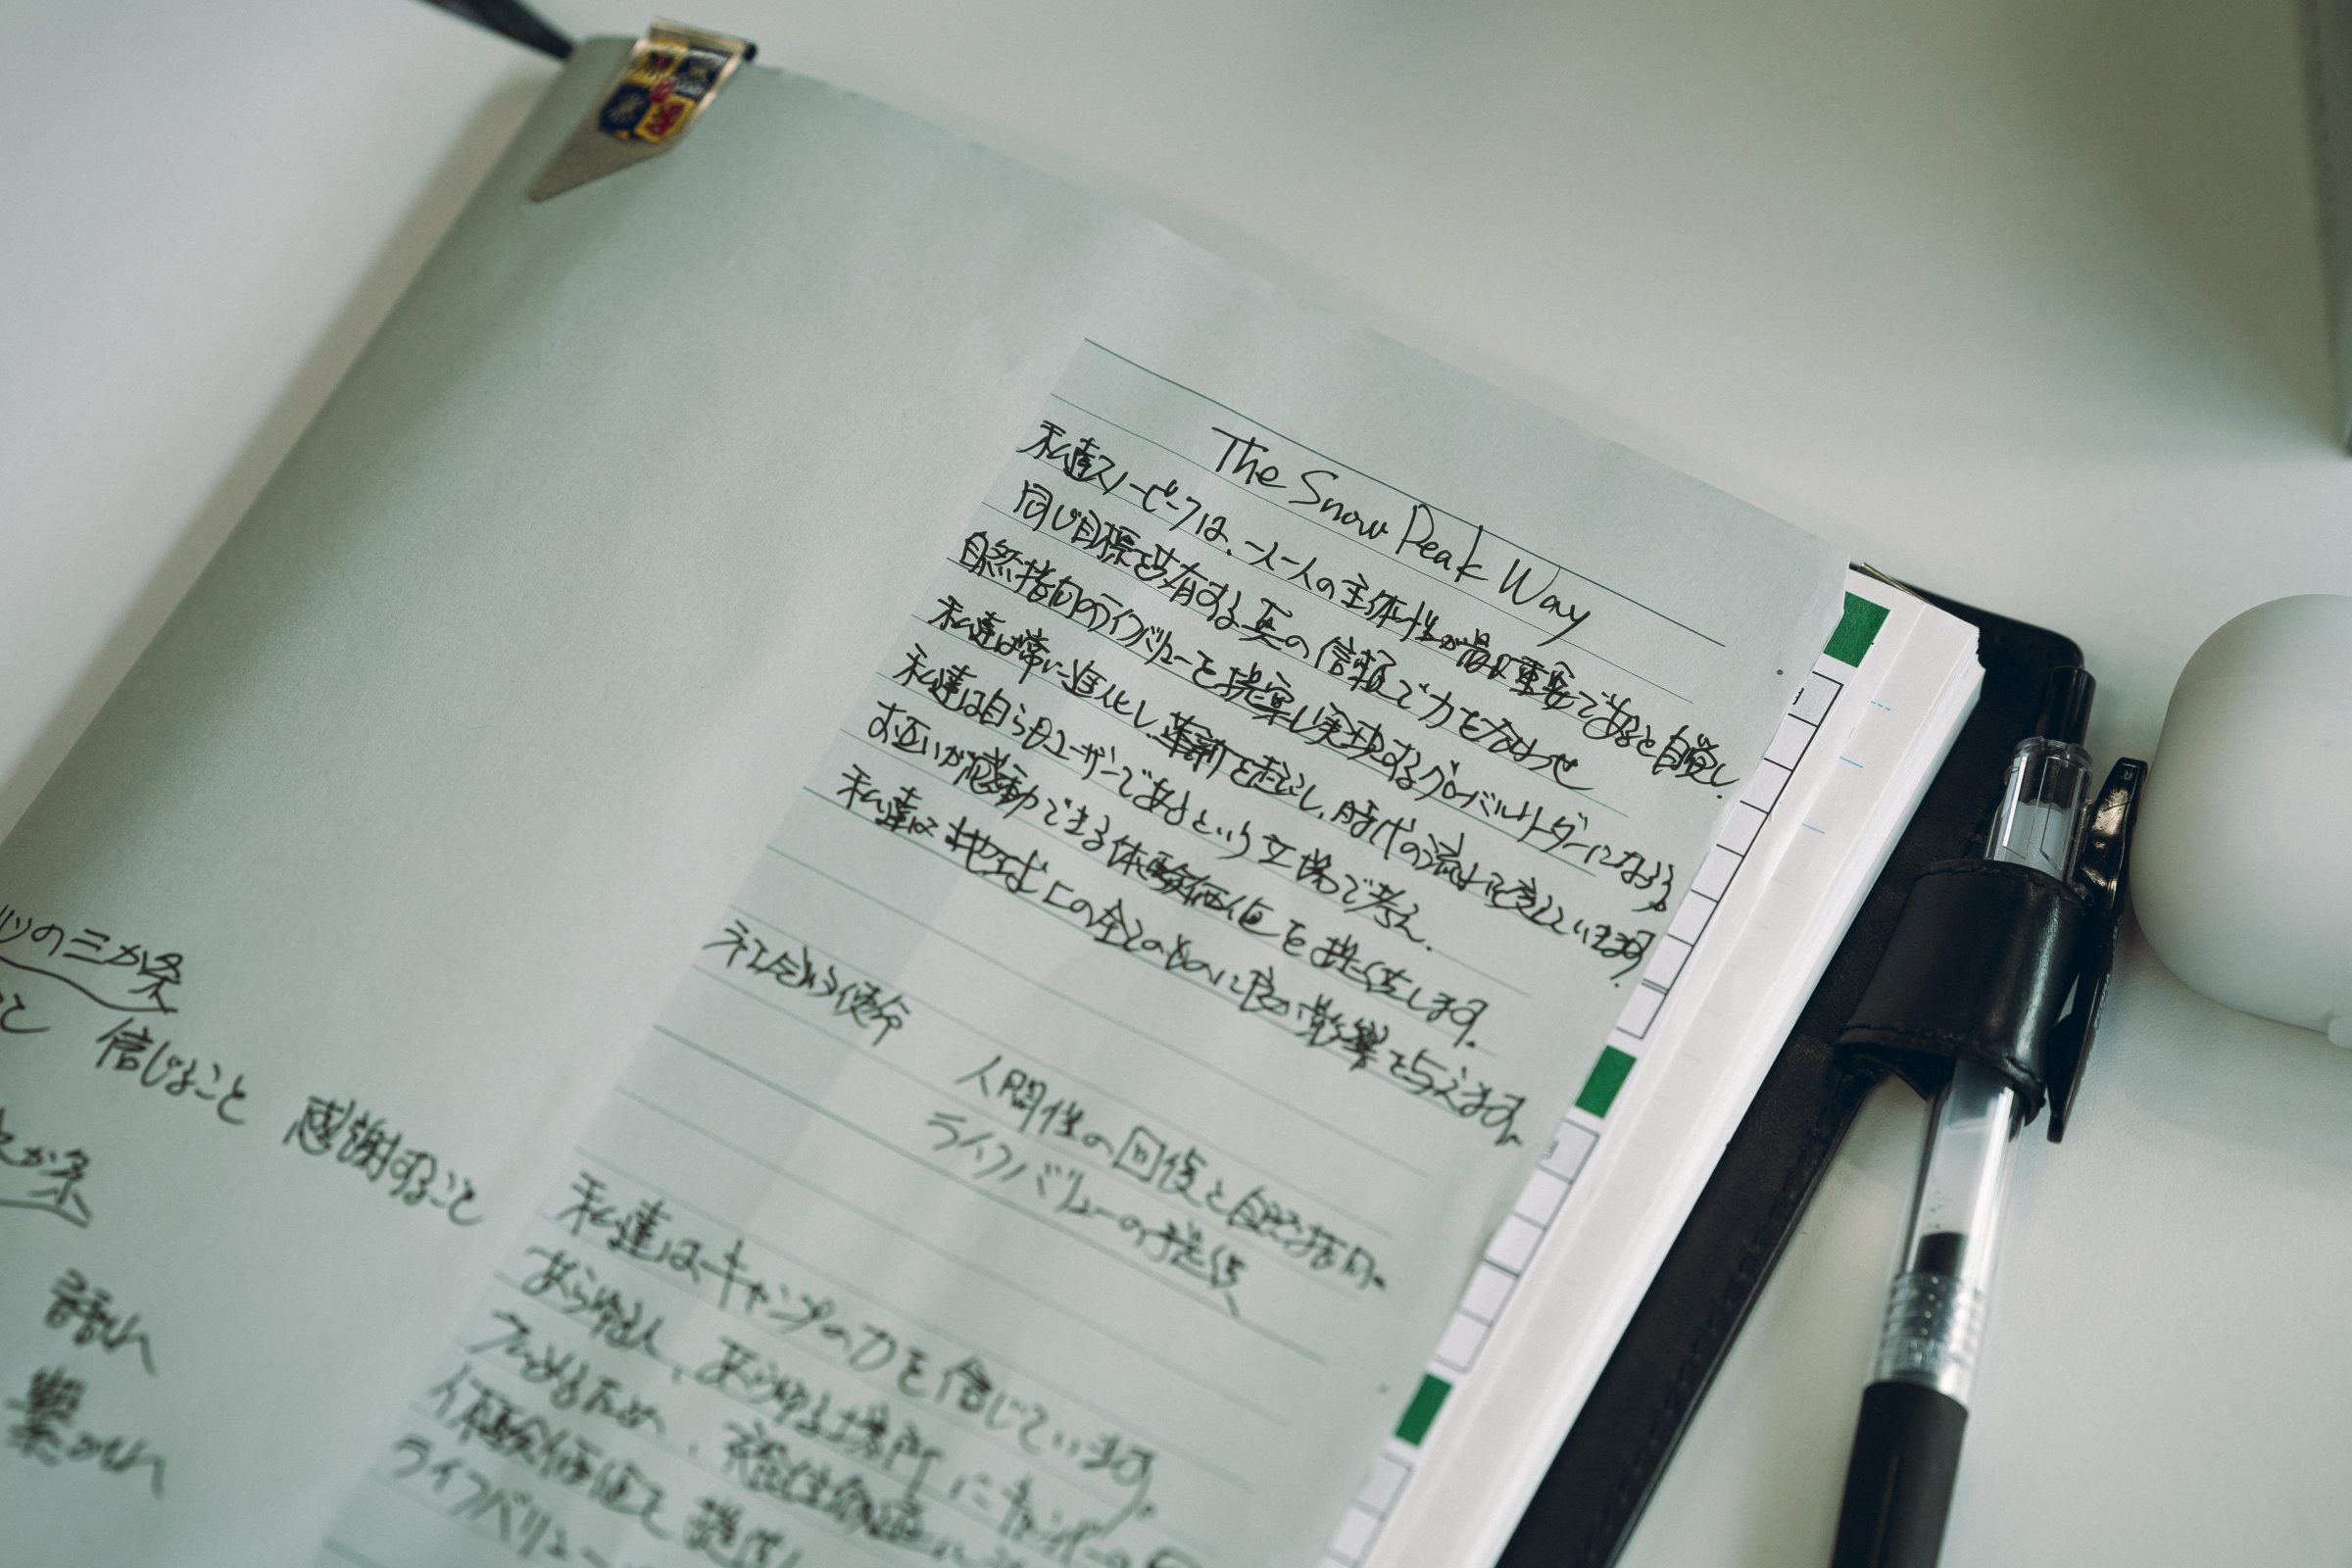 The Snow Peak Way
私達スノーピークは、一人一人の主体性が最も重要であると自覚し、
同じ目標を共有する真の信頼で力を合わせ
自然指向のライフバリューを提案し実現するグローバルリーダーになろう。
私達は常に進化し、革新を起こし、時代の流れを変えていきます。
私達は自らもユーザーであるという立場で考え、
お互いが感動できる体験価値を提供します。
私達は地球上の全てのものに良い影響を与えます。
社会的使命
人間性の回復と自然指向
ライフバリューの提供
私達はキャンプの力を信じています。
あらゆる人、あらゆる場所にキャンパーの
ライフバリュー
の三か条
こと 信じること 感謝すること
か条